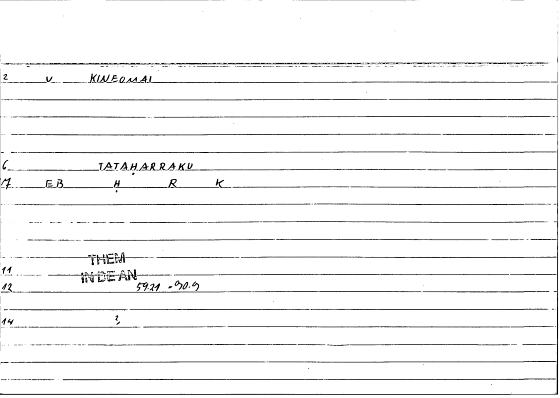 2 V KINEOMAI
6 TATAḤARRAKU
17 EB Ḥ R K
THEM
11
INDEAN
12 5921 -90.9
14 2,